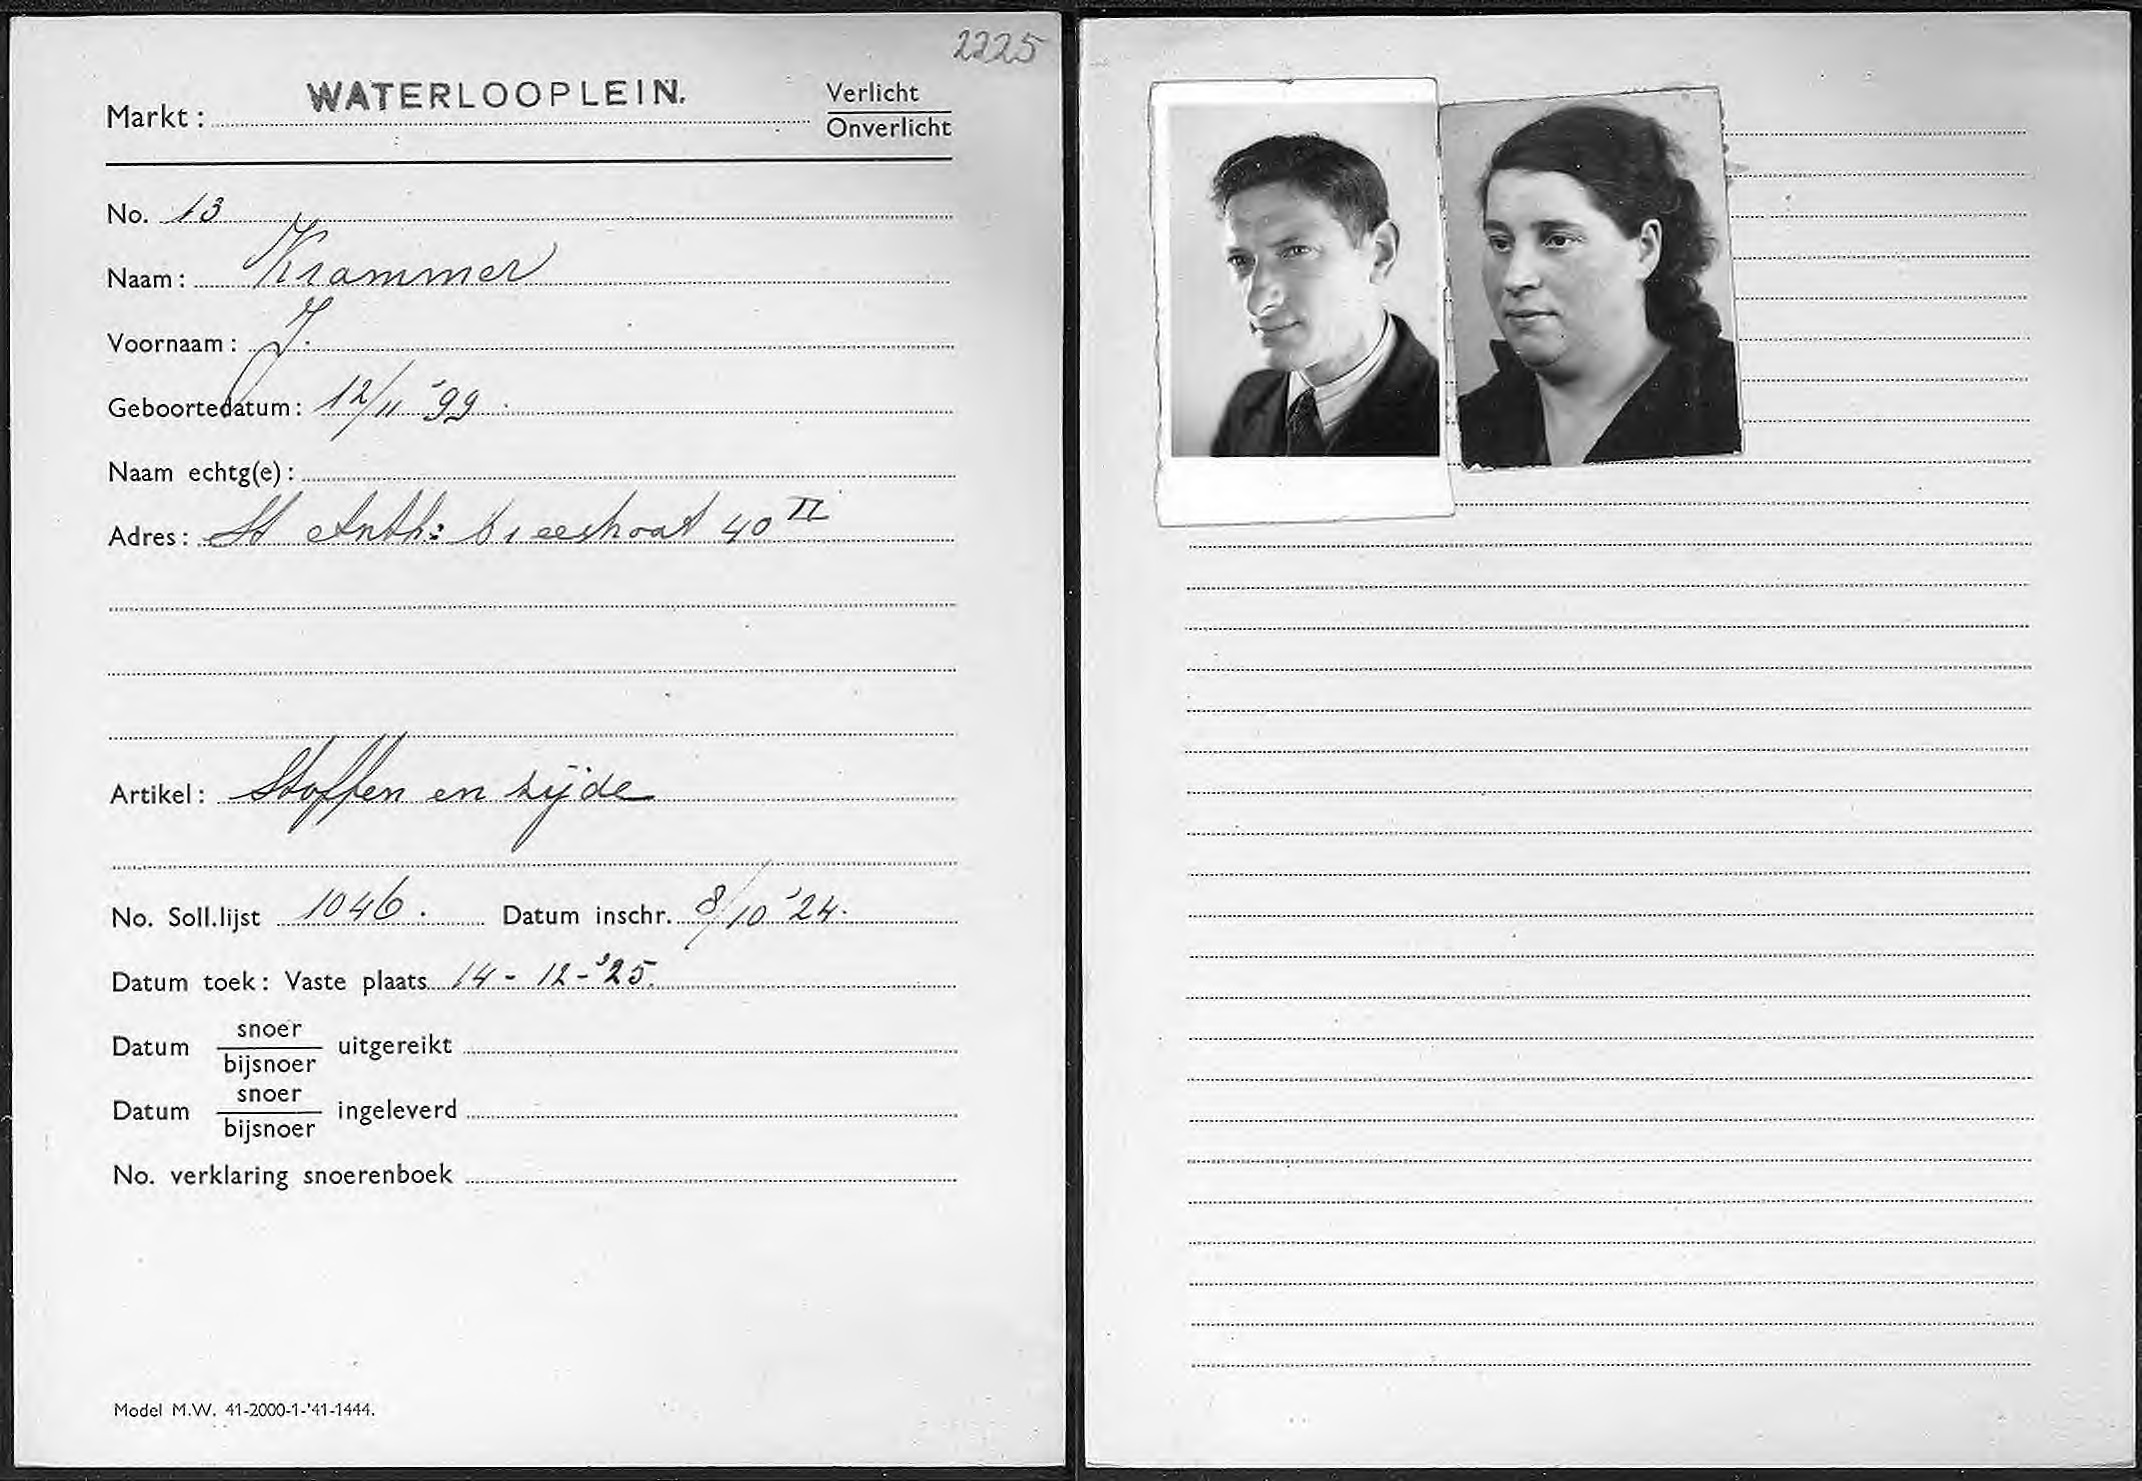 2225
Markt: WATERLOOPLEIN. Verlicht
Onverlicht
No. 13
Naam: Krammer
Voornaam: J.
Geboortedatum: 12/11 '99
Naam echtg(e):
Adres: St Anth: Breestraat 40 II
Artikel: Stoffen en zijde
No. Soll.lijst 1046. Datum inschr. 8/10 '24.
Datum toek: Vaste plaats 14-12-'25.
Datum snoer/bijsnoer uitgereikt
Datum snoer/bijsnoer ingeleverd
No. verklaring snoerenboek
Model M.W. 41-2000-1-'41-1444.